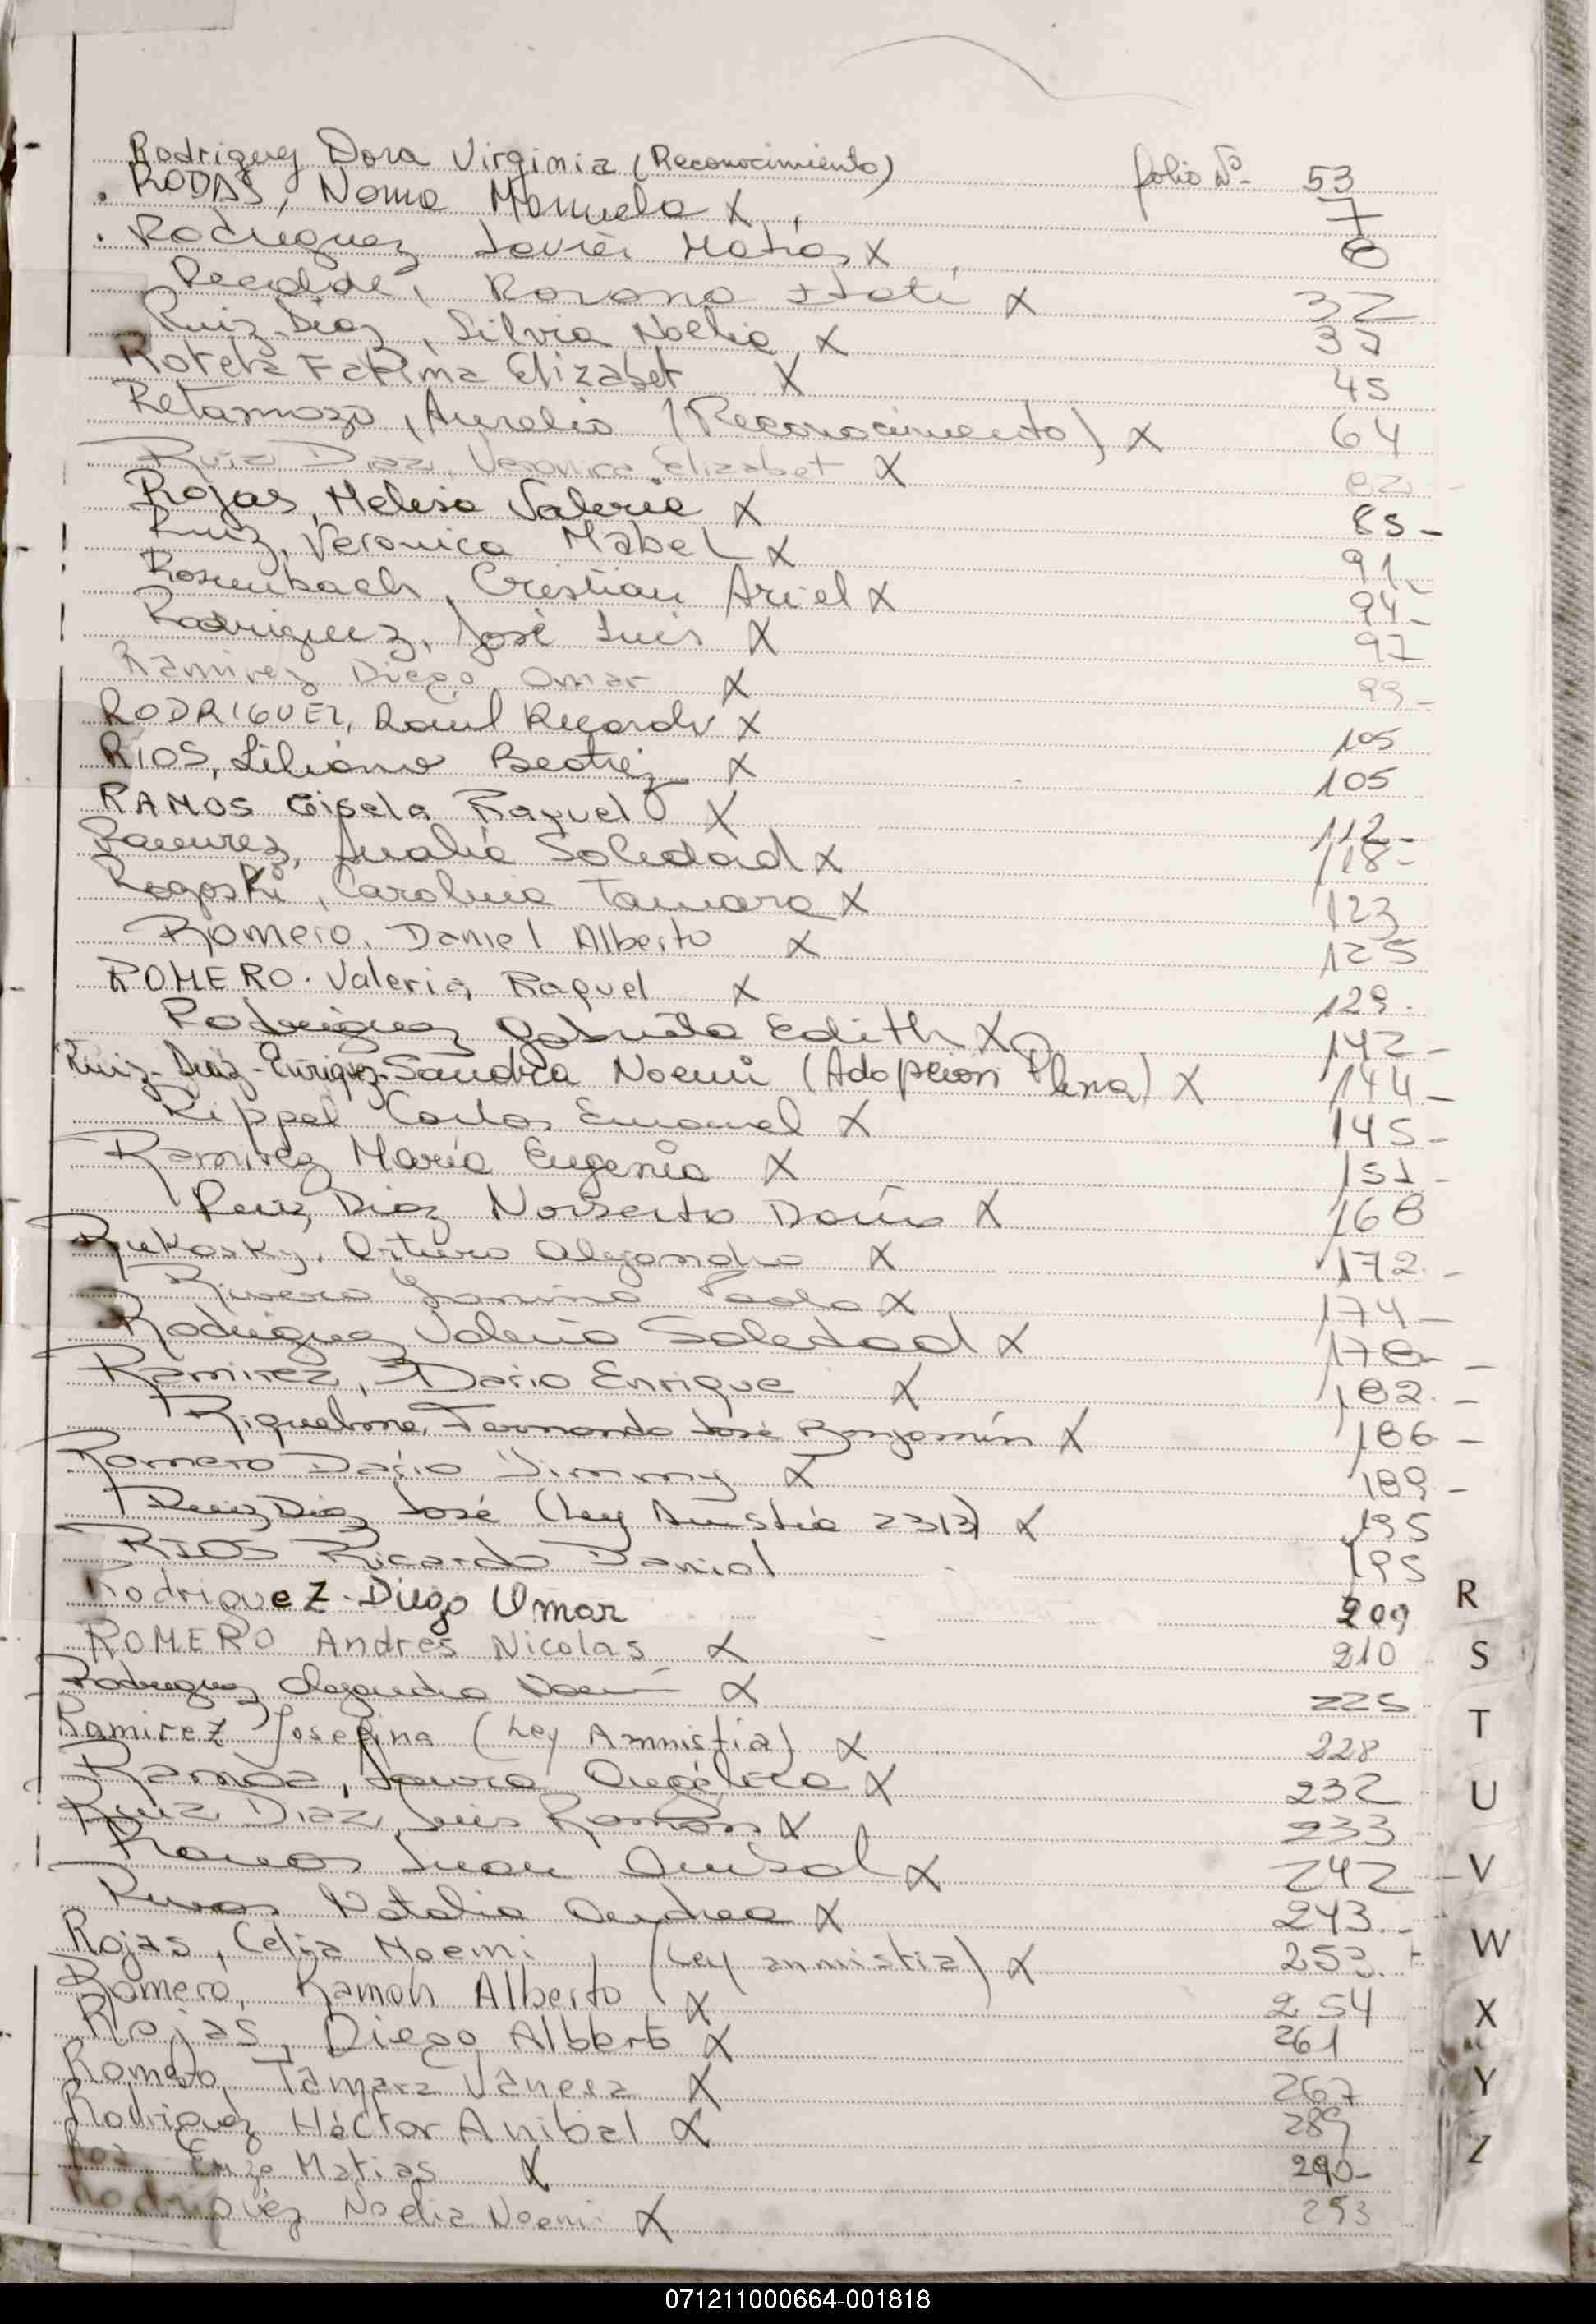 Rodriguez Dora Virginia (Reconocimiento) folio Nº 53
. RODAS, Norma Manuela X 7
. Rodriguez Javier Matias X 8
Recalde, Rosana Itati X 32
Ruiz Diaz, Silvia Noelia X 35
Rotela Fatima Elizabet X 45
Retamozo, Aurelio (Reconocimiento) X 64
Ruiz Diaz, Veronica Elizabet X 82
Rojas, Melisa Valeria X 85-
Ruiz, Veronica Mabel X 91-
Rosenbach, Cristian Ariel X 94-
Rodriguez, José Luis X 97
Ramirez Diego Omar X 99-
RODRIGUEZ, Raúl Ricardo X 105
RIOS, Liliana Beatriz X 105
RAMOS Gisela Raquel X 112-
Ramirez, Analia Soledad X 118-
Rogoski, Carolina Tamara X 123
Romero, Daniel Alberto X 125
ROMERO. Valeria Raquel X 129.
Rodriguez Gabriela Edith X 142-
Ruiz-Diaz-Enriquez-Sandra Noemi (Adopcion Plena) X 144-
Rippel Carlos Emanuel X 145-
Ramirez María Eugenia X 151-
Ruiz Diaz Norberto Darío X 168
Rukosky, Arturo Alejandro X 172-
Rivero Janina Paola X 174-
Rodriguez Valeria Soledad X 178-
Ramirez, Dario Enrique X 182.-
Riquelme, Fernando José Benjamín X 186-
Romero Dario Jimmy X 189-
Ruiz Diaz José (Ley Amistia 2313) X 195
RIOS Ricardo Daniel 195
Rodriguez-Diego Omar 209
ROMERO Andres Nicolas X 210
Rodriguez Alejandra Noemi X 225
Ramirez Josefina (Ley Amnistia) X 228
Laura Angélica X 232
Ruiz Diaz, Luis Ramón X 233
Ramos Juan Anibal X 242
Natalia Andrea X 243.-
Rojas, Celia Noemi (Ley annistia) X 253.
Romero, Ramon Alberto X 254
Rojas, Diego Alberto X 261
Romero, Tamara Vanesa X 267
Rodriguez Héctor Anibal X 289
Enzo Matias X 290-
Rodriguez Noelia Noemi X 293
R
S
T
U
V
W
X
Y
Z
071211000664-001818